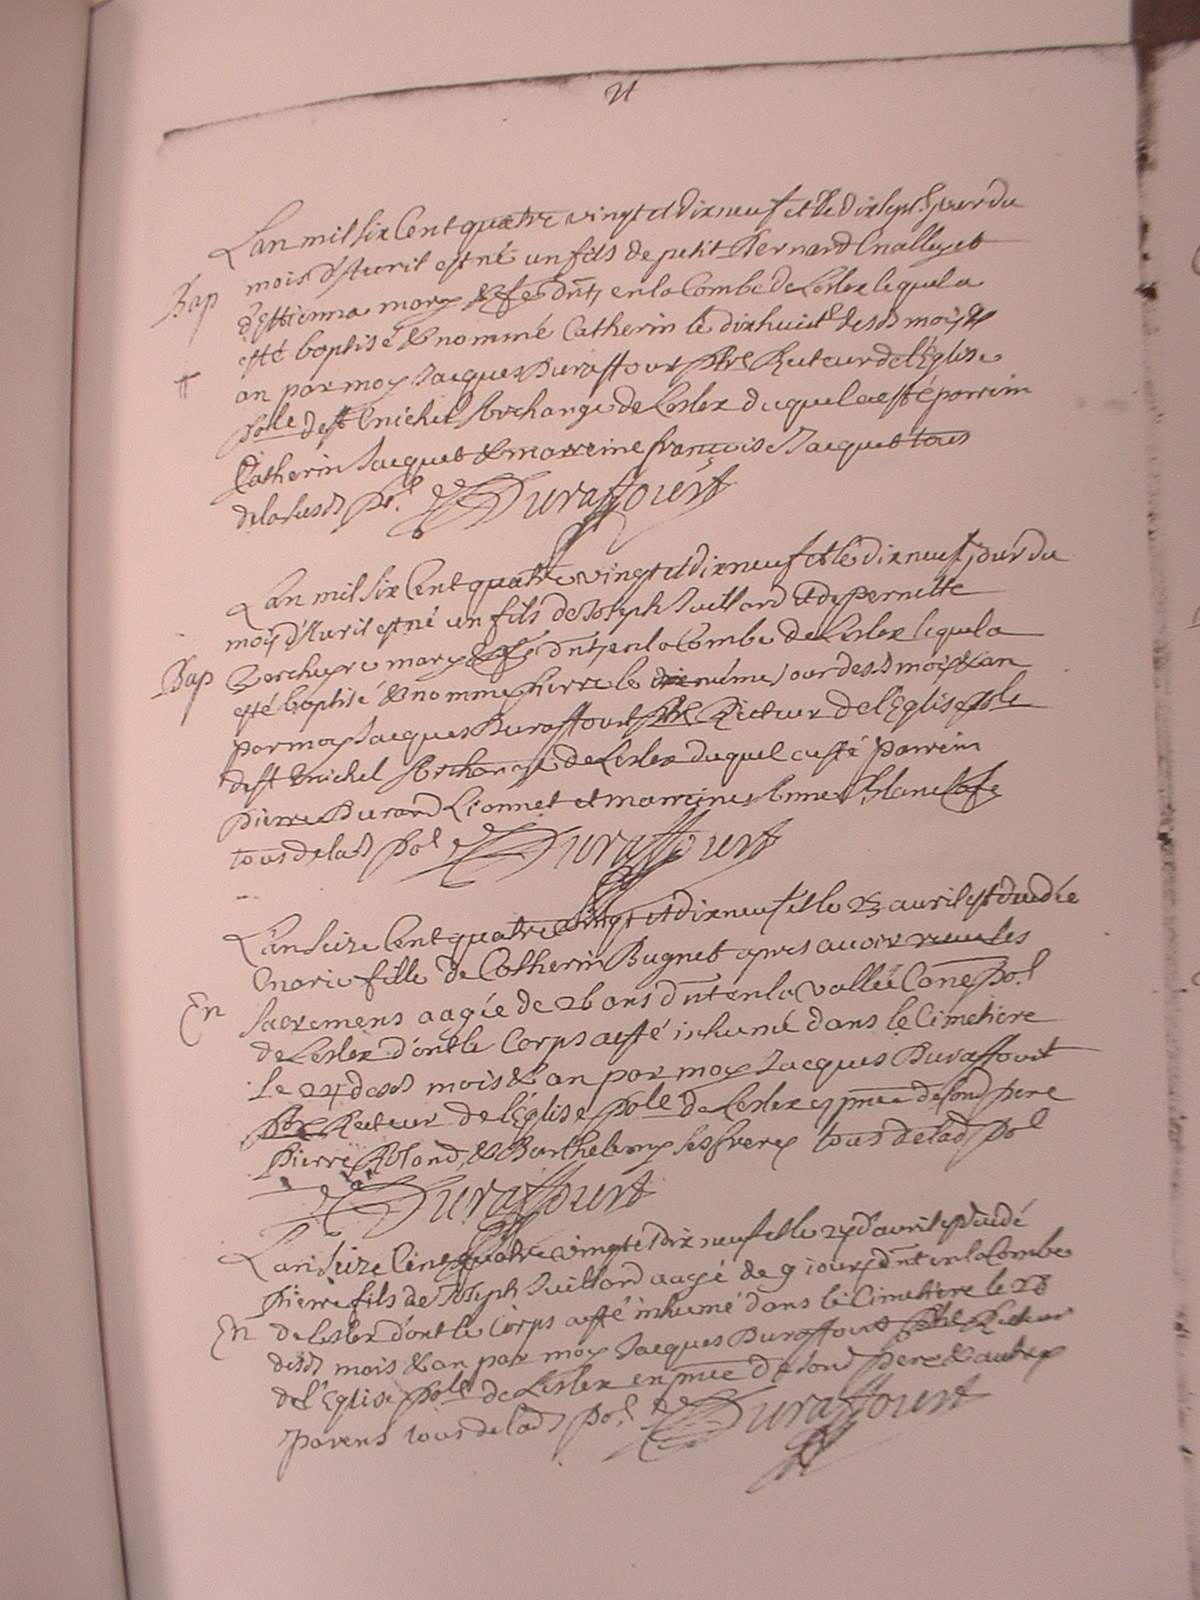 21
Lan mil six Cent quatre vingt et dix neuf et le dix sept jour du
mois d'Avril est né un fils de petit Bernard
Bap
d'Ettienna marys & fe dnts en la Combe de Leslex lequel a
esté baptisé & nommé Catherin le dixhuict desd mois &
an par moy Jacques Duraffourt Ptre Recteur de l'Eglise
polle de st Michel Archange de Leslex duquel a esté parrin
Catherin Jacquet & marreine françoise Jacquet tous
de la susd pol. Duraffourt
Lan mil six Cent quatre vingt et dix neuf et le dix neuf jour du
moys d'Avril est né un fils de Joseph Juillard et de pernette
marys & fe dnts en la Combe de Leslex lequel a
Bap
esté baptisé & nommé pierre le meme jour desd mois & an
par moy Jacques Duraffourt Ptre Recteur de l'Eglise polle
de st Michel Archange de Leslex duquel a esté parrein
pierre Durand Lionnet et marreine Anne
tous de lad pol Duraffourt
L'an seize Cent quatre vingt et dix neuf et le 23 avril est décédée
Marie fille de Catherin Bugnet apres avoir receu les
En
sacremens aagée de 26 ans dnte en la vallée Cone pol.
de Leslex dont le Corps a esté inhumé dans le Cimetiere
le 24 desd mois & an par moy Jacques Duraffourt
Ptre Recteur de l'Eglise polle de Leslex en pnce de sond pere
pierre Roland, & Barthelemy ses freres tous de lad pol
Duraffourt
L'an seize Cent quatre vingt et dix neuf et le 27 d'avril est décédé
pierre fils de Joseph Juillard aagé de 9 jours dnt en la Combe
En
de Leslex dont le Corps a esté inhumé dans le Cimetiere le 28
desd mois & an par moy Jacques Duraffourt Ptre Recteur
de l'Eglise polle de Leslex en pnce de sond pere & autres
parens tous de lad pol. Duraffourt